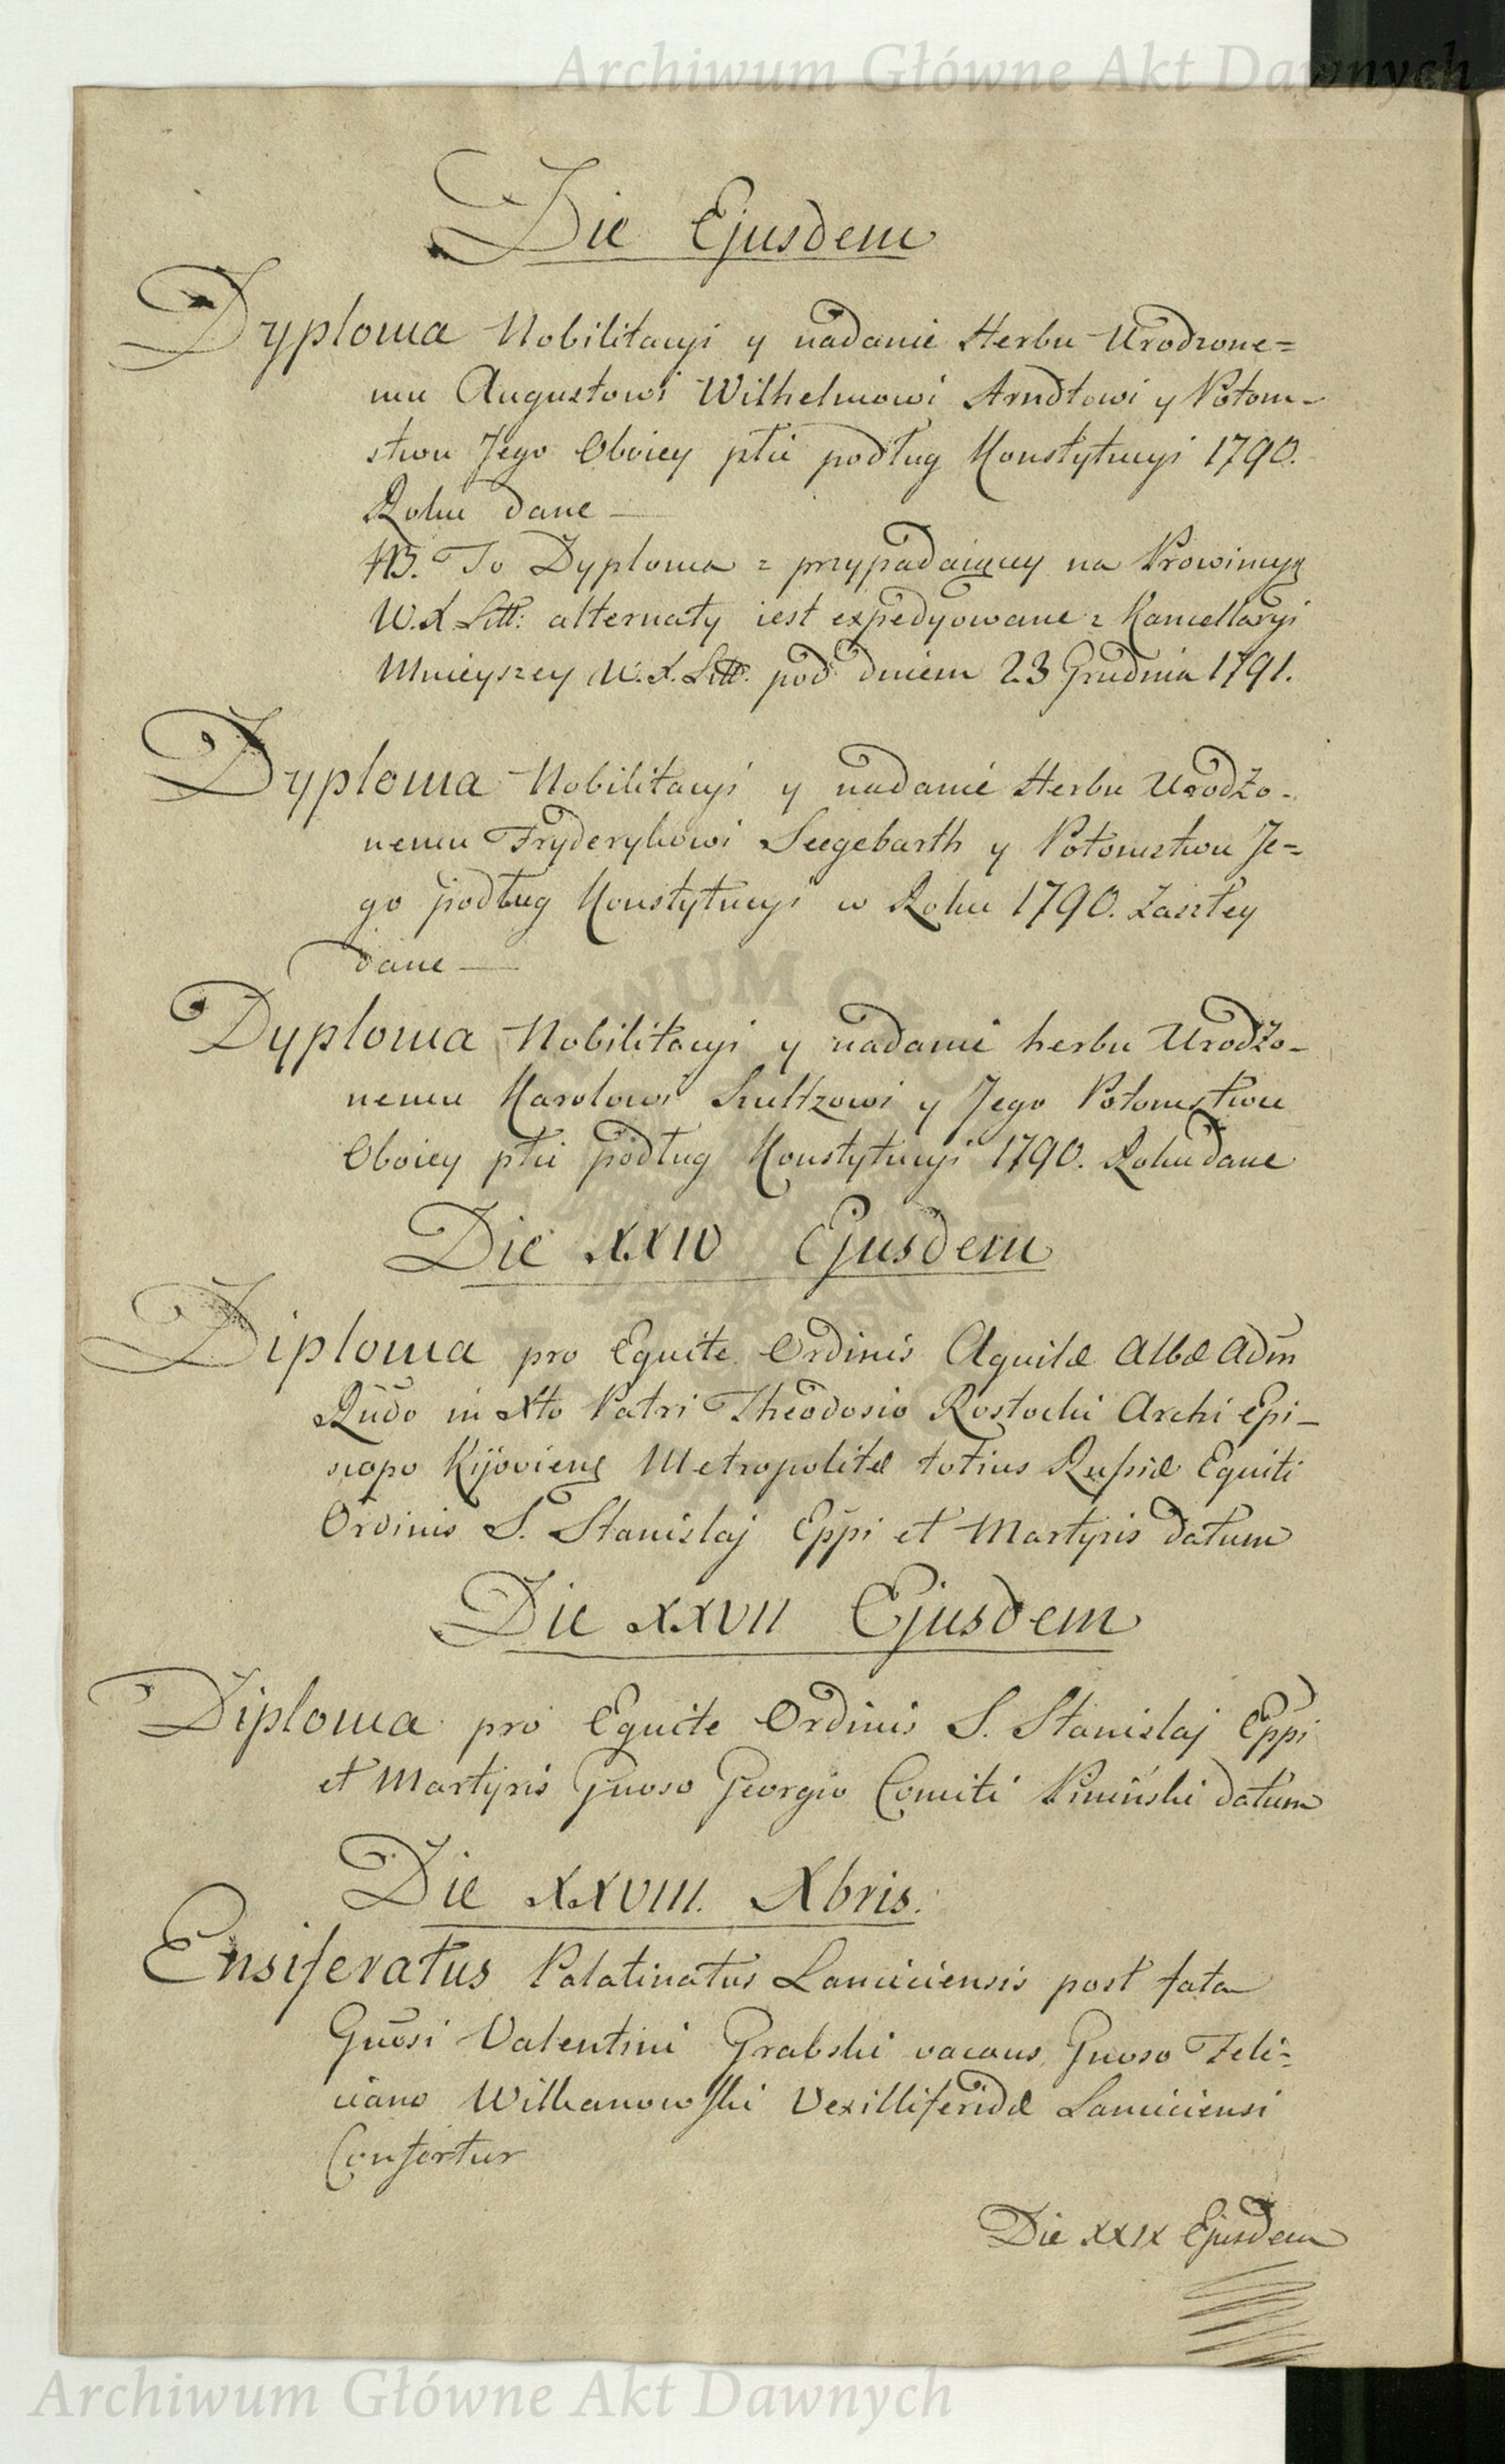 Archiwum Główne Akt Dawnych
Die Ejusdem
Dyploma Nobilitacyi y nadanie Herbu Urodzone=
mu Augustowi Wilhelmowi Arndtowi y Potom-
stwu Jego Oboiey płci podług Konstytucyi 1790.
Roku dane —
NB. To Dyploma z przypadaiącey na Prowincyą
W.X Litt: alternaty iest expedyowane z Kancellaryi
Mnieyszey W.X.Litt. pod dniem 23 Grudnia 1791.
Dyploma Nobilitacyi y nadanie Herbu Urodzo-
nemu Fryderykowi Seegebarth y Potomstwu Je=
go podług Konstytucyi w Roku 1790. Zaszłey
dane —
Dyploma Nobilitacyi y nadanie herbu Urodzo-
nemu Karolowi Szultzowi y Jego Potomstwu
Oboiey płci podług Konstytucyi 1790. Roku dane
Die XXIV Ejusdem
Diploma pro Equite Ordinis Aquilæ Albæ Adm
Rndo in Xto Patri Theodosio Rostocki Archi Epi-
scopo Kijoviens Metropolitæ totius Russiæ Equiti
Ordinis S. Stanislaj Eppi et Martyris datum
Die XXVII Ejusdem
Diploma pro Equite Ordinis S. Stanislaj Eppi
et Martyris Gnoso Georgio Comiti Pininski datum
Die XXVIII. Xbris.
Ensiferatus Palatinatus Lanciciensis post fata
Gnosi Valentini Grabski vacans Gnoso Feli=
ciano Wilkanowski Vexilliferidæ Lanciciensi
Confertur
Die XXIX Ejusdem
Archiwum Główne Akt Dawnych